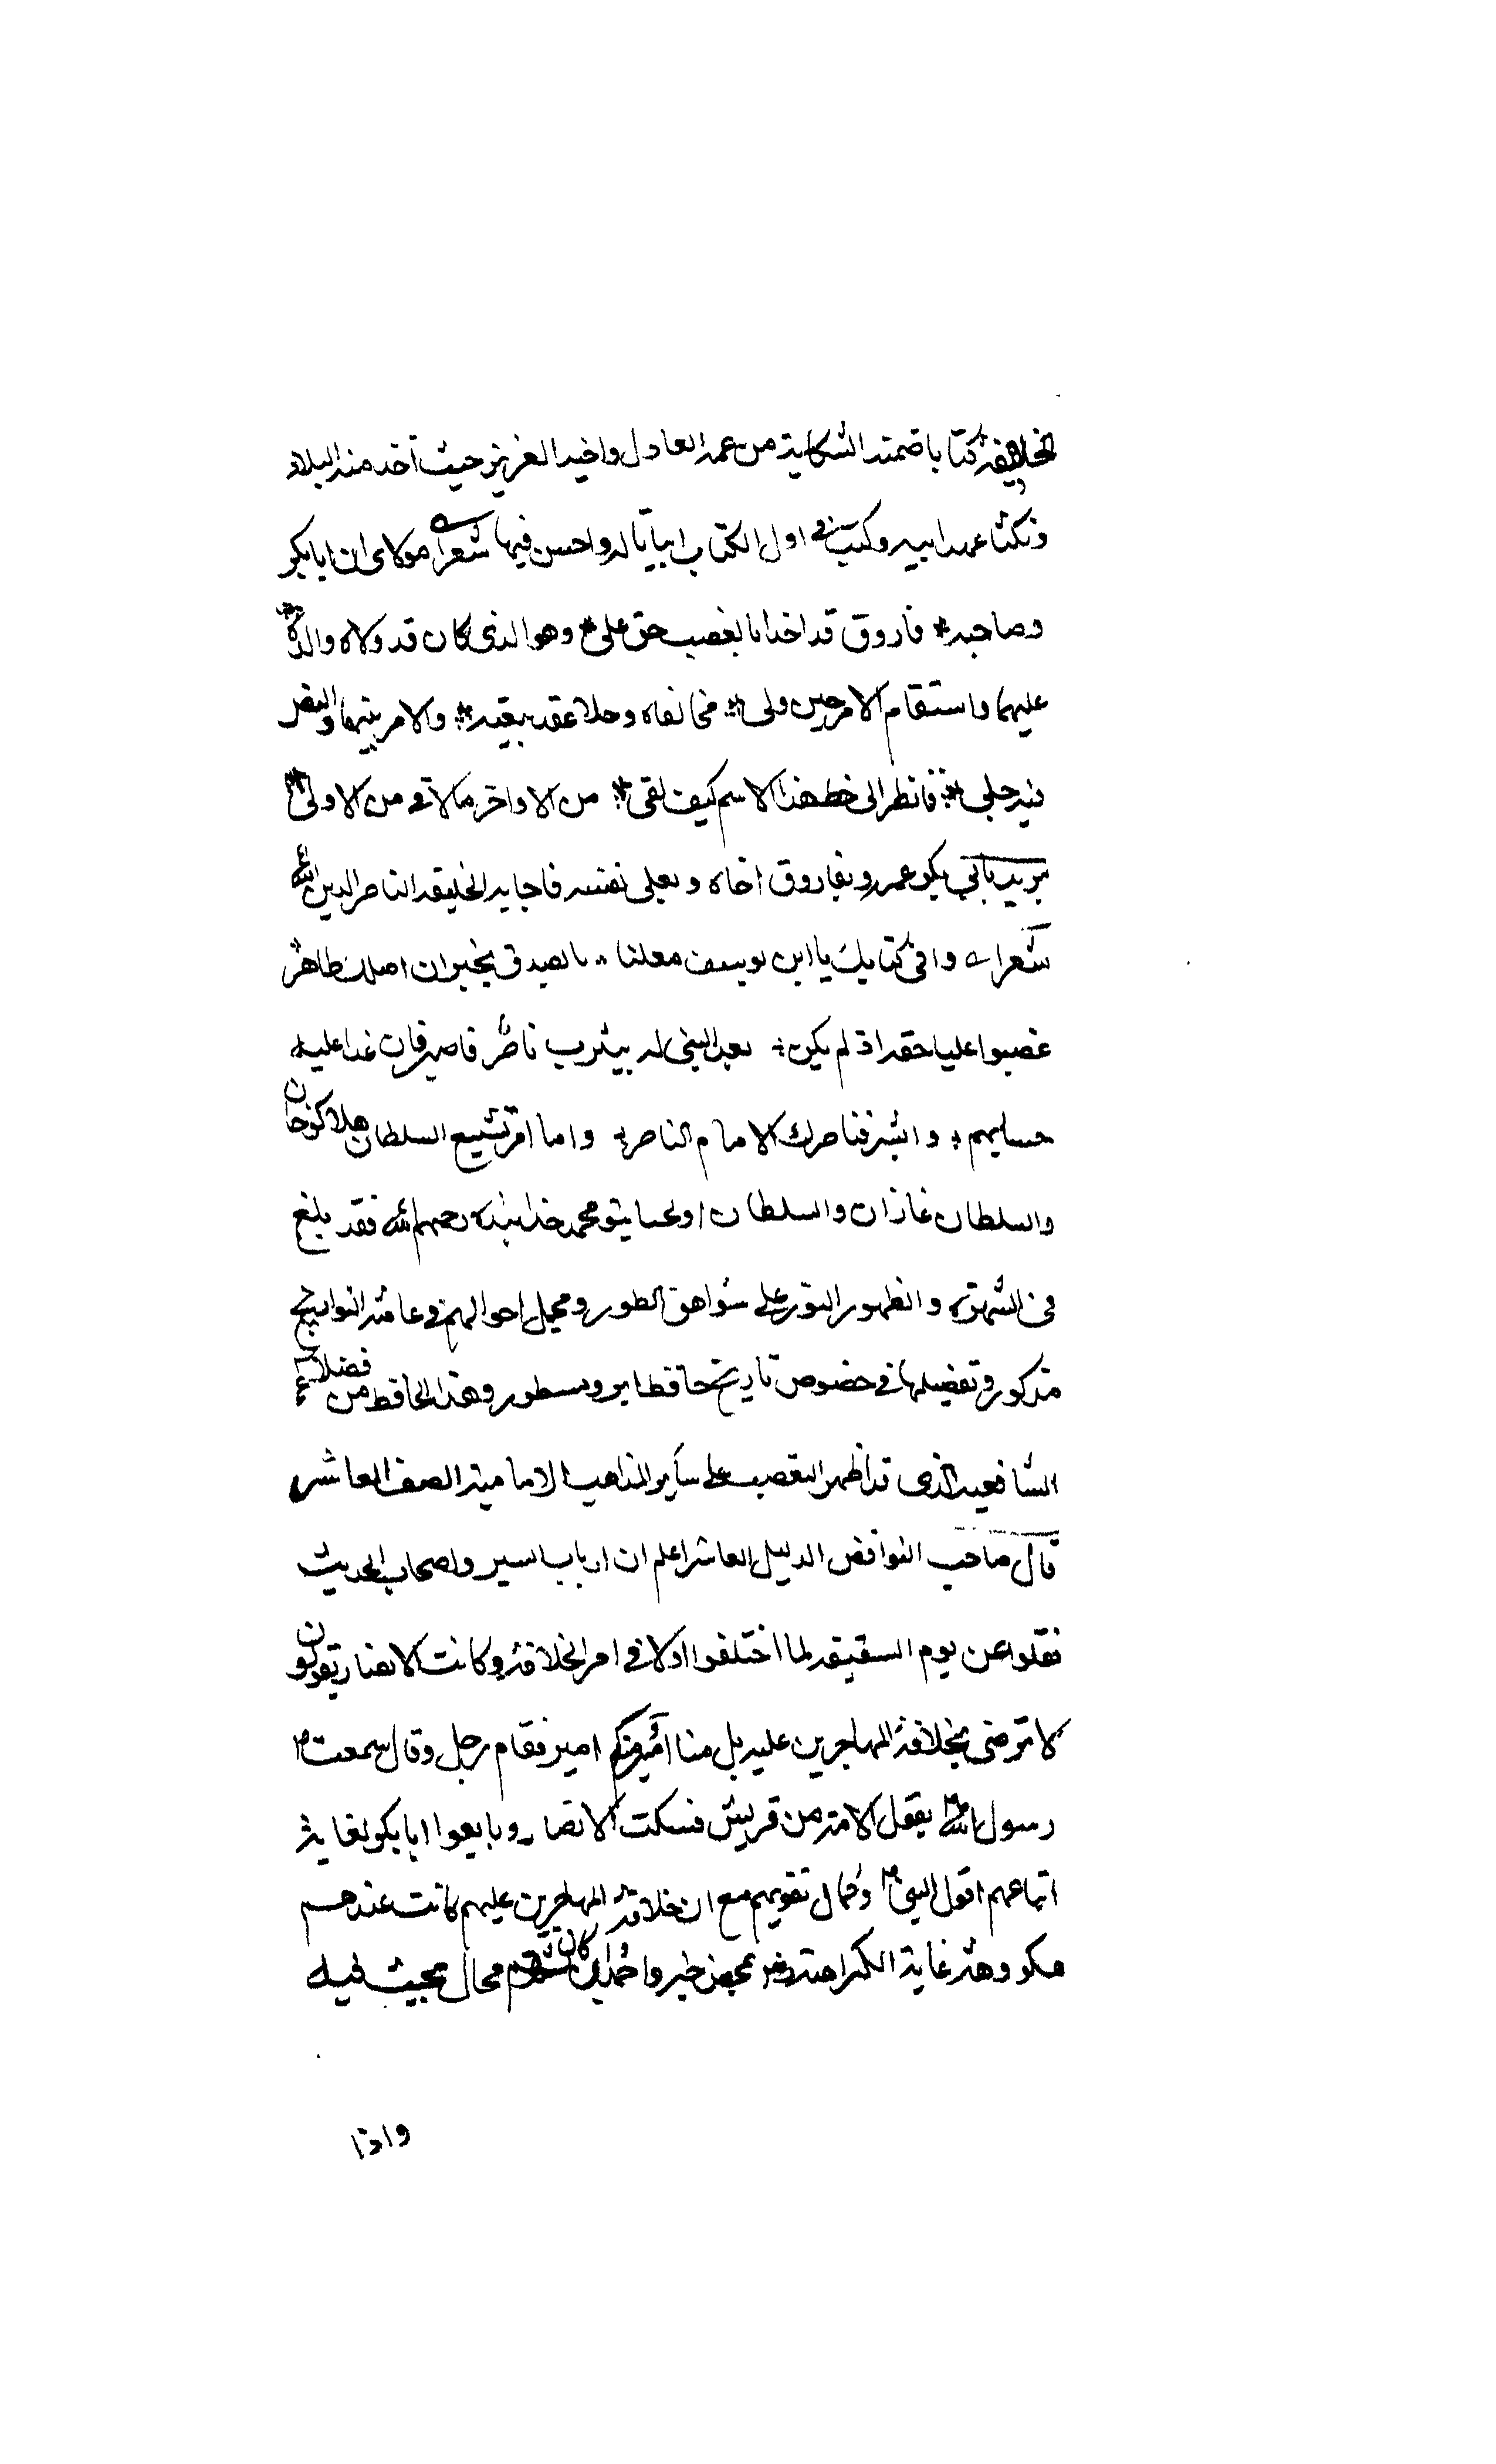 الخليفة كتابا ضمنه الشكاية من عمه العادل واخيه العزيز حيث اخذ منه البلاد
ونكثا عهد ابيه وكتب في اول الكتاب ابياتا له واحسن فيها شعرا مولاى ان ابا بكر
وصاحبه * فاروق قد اخذا بالغصب حق على * وهو الذى كان قد ولاه والده *
عليهما واستقام الامر حين ولى * فخالفاه وحلا عقد بيعته * والامر بينهما والنص
فيه جلى * فانظر الى خط هذا الاسم كيف لقى * من الاواخر ما لاقى من الاولى *
يريد بابى بكر عمه وبفاروق اخاه وبعلى نفسه فاجابه الخليفة الناصر لدين الله
شعرا وافى كتابك يا ابن يوسف معلنا * بالصدق يخبر ان اصلك طاهر
غصبوا عليا حقه اذ لم يكن * بعد النبى له بيثرب ناصر فاصبر فان غدا عليه
حسابهم * وابشر فناصرك الامام الناصر * واما امر تشيع السلطان هلاكو خان
والسلطان غازان والسلطان اولجايتو محمد خدابنده رحمهم الله فقد بلغ
فى الشهرة والظهور النور على شواهق الطور ومجمل احوالهم في عامة التواريخ
مذكور وتفضيلها في خصوص تاريخ حافظ ابرو مسطور وهذا الحافظ من فضلاء
الشافعية الذى قد اظهر التعصب على ساير المذاهب الامامية الصف العاشر
قال صاحب النواقض الدليل العاشر اعلم ان ارباب السير واصحاب الحديث
نقلوا عن يوم السقيفة لما اختلفوا اولا في امر الخلافة وكانت الانصار يقولون
لا نرضى بخلافة المهاجرين عليه بل منا امير ومنكم امير فقام رجل وقال سمعت
رسول الله ص يقول الائمة من قريش فسكت الانصار وبايعوا ابا بكر لغاية
اتباعهم اقول النبى ص وكمال تقويهم مع ان خلافة المهاجرين عليهم كانت عندهم
مكروهة غاية الكراهة بمحض خبر واحد كان محال بحيث فيه
واذا